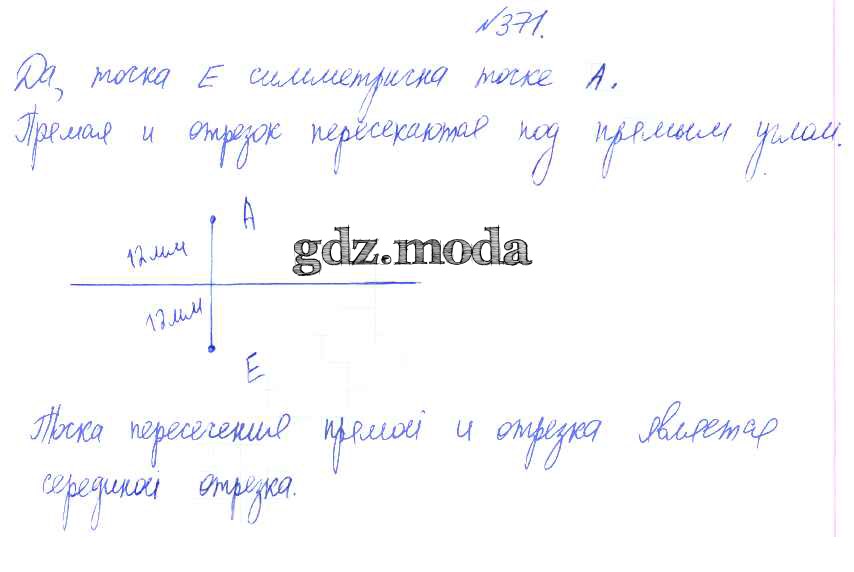 №371.
Да, точка E симметрична точке A.
Прямая и отрезок пересекаются под прямым углом.
A
gdz.moda
12мм
12мм
E
Точка пересечения прямой и отрезка является
серединой отрезка.